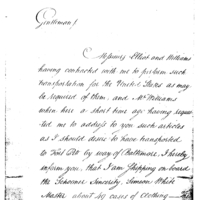 Gentlemen
Messieurs Elliot and Williams
having contracted with me to perform such
transportation for the United States as may
be required of them, and Mr Williams
when here a short time ago having reques
ted me to address to you such articles
as I should desire to have transported
to Fort Pitt by way of Baltimore, I hereby
inform you, that I am Shipping on board
the Schooner Sincerity, Simeon White
Master about 49 cases of clothing